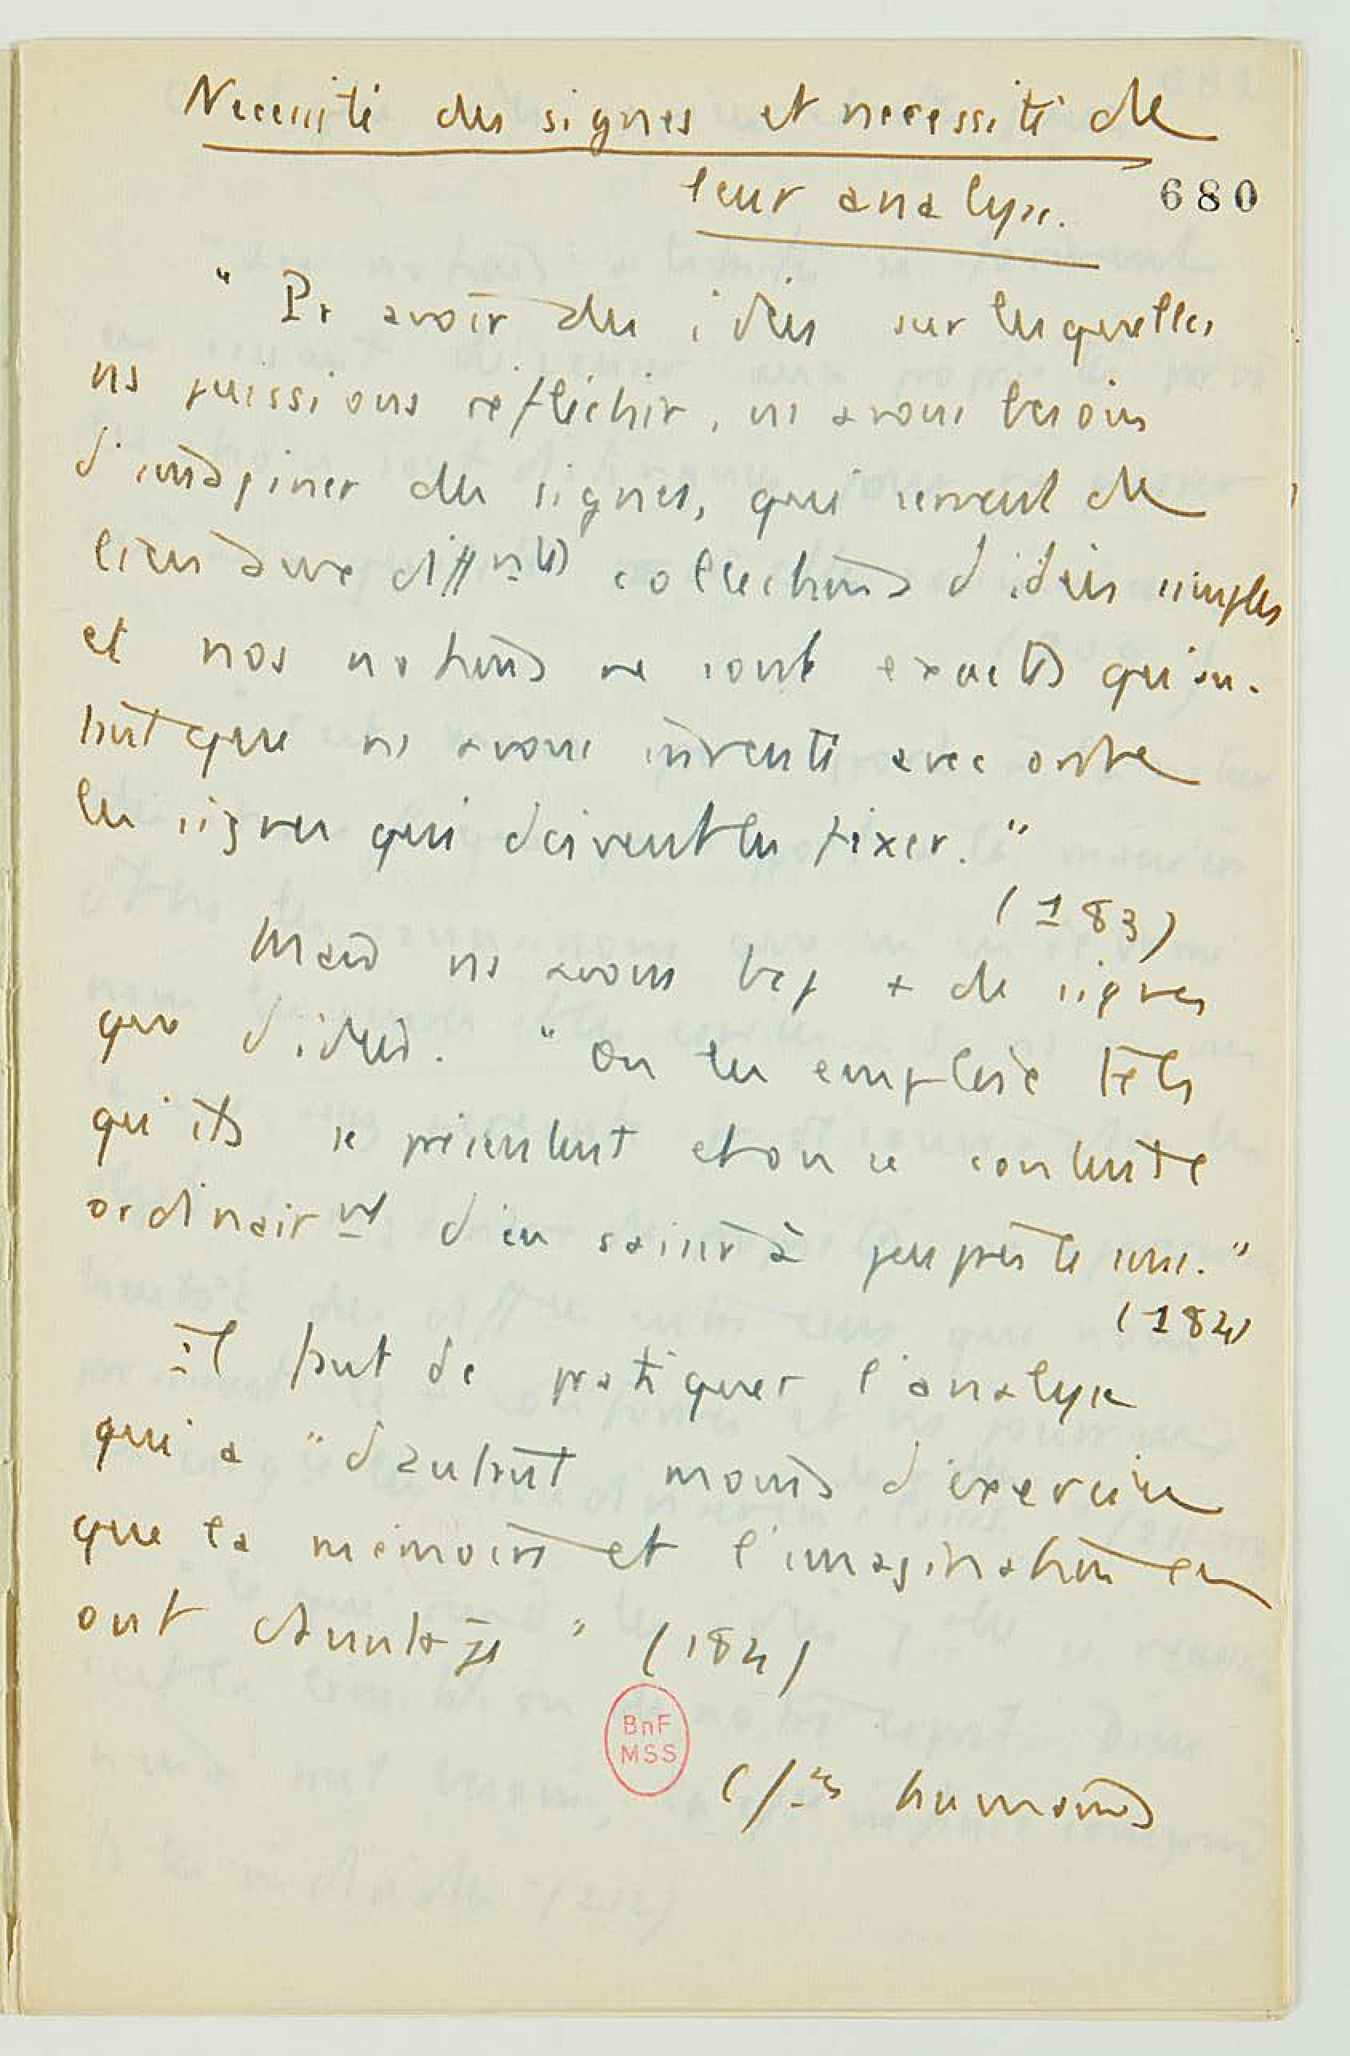 Necessité des signes et necessité de
leur analyse.
680
" Pr avoir des idées sur lesquelles
ns puissions réfléchir, ns avons besoin
d'imaginer des signes, qui servent de
liens aux diffntes collections d'idées simples
et nos notions ne sont exactes qu'au-
tant que ns avons inventé avec ordre
les signes qui doivent les fixer. "
(183)
Mais ns avons bcp + de signes
que d'idées. " On les emploie tels
qu'ils se présentent et on se contente
ordinairnt d'en saisir à peu près le sens. "
(184)
Il faut de pratiquer l'analyse
qui a " d'autant moins d'exercice
que la mémoire et l'imagination en
ont davantage " (184)
BnF
MSS
humaines